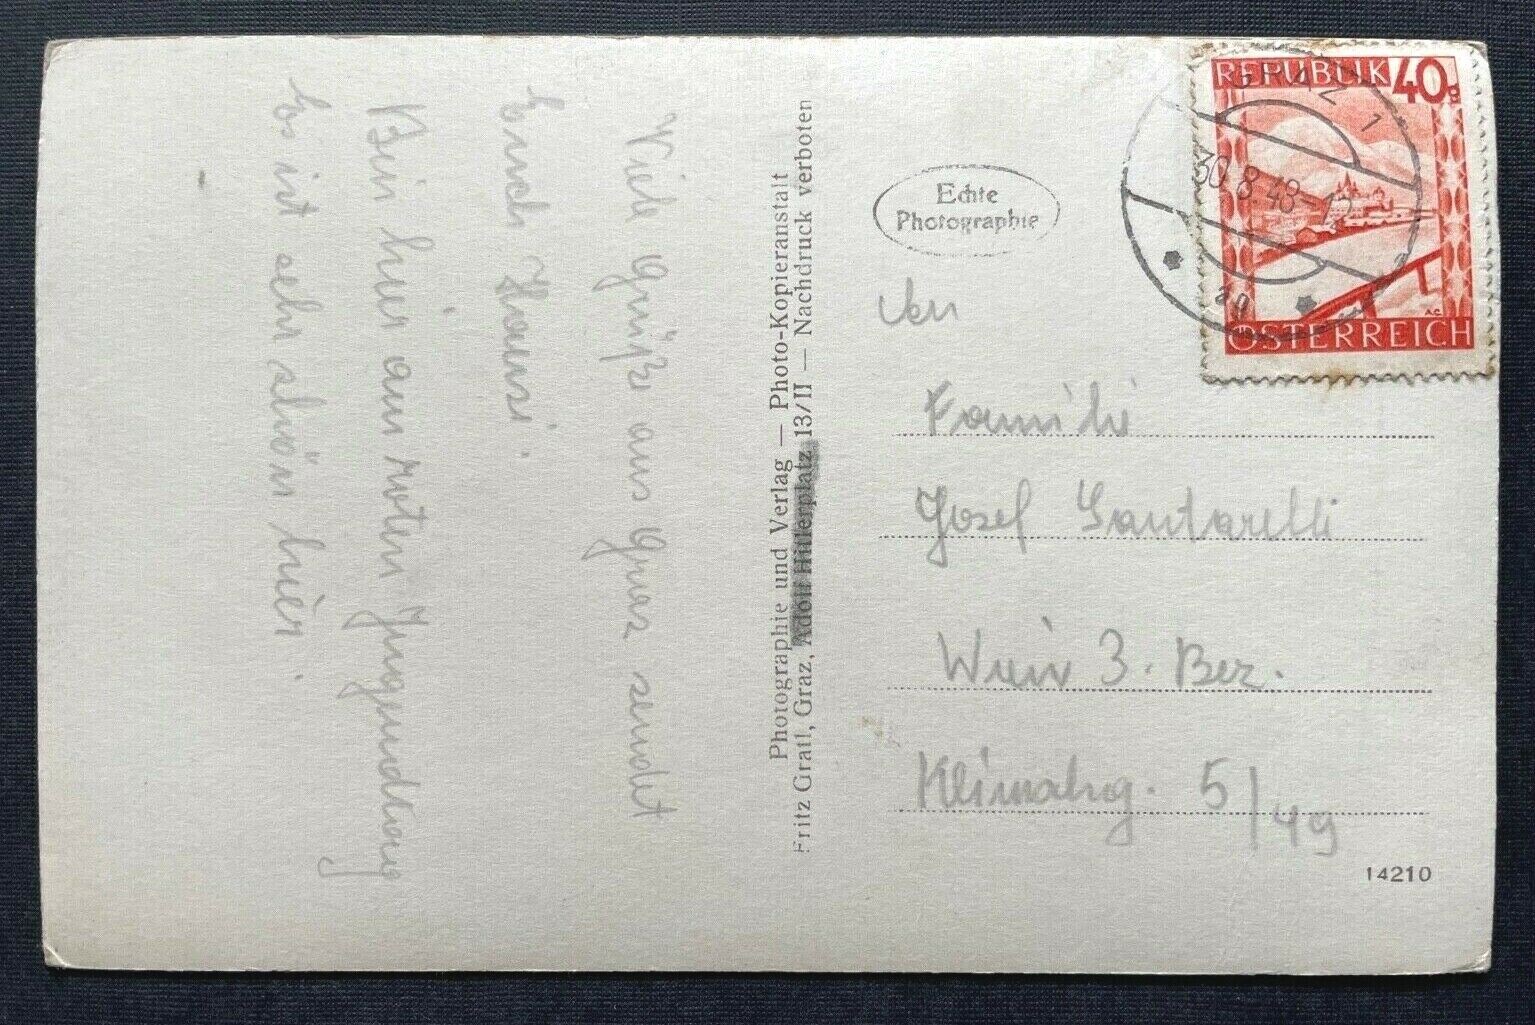 Viele Grüße aus Graz sendet
Euch Hansi
Bin hier am roten Jugendtag
Es ist sehr schön hier.
Photographie und Verlag — Photo-Kopieranstalt
Graz, Adolf Hitlerplatz 13/II — Nachdruck verboten
Echte
Photographie
REPUBLIK 40
ÖSTERREICH
GRAZ 1
30.8.48-12
An
Familie
Josef Santarelli
Wien 3. Bez.
5/49
14210